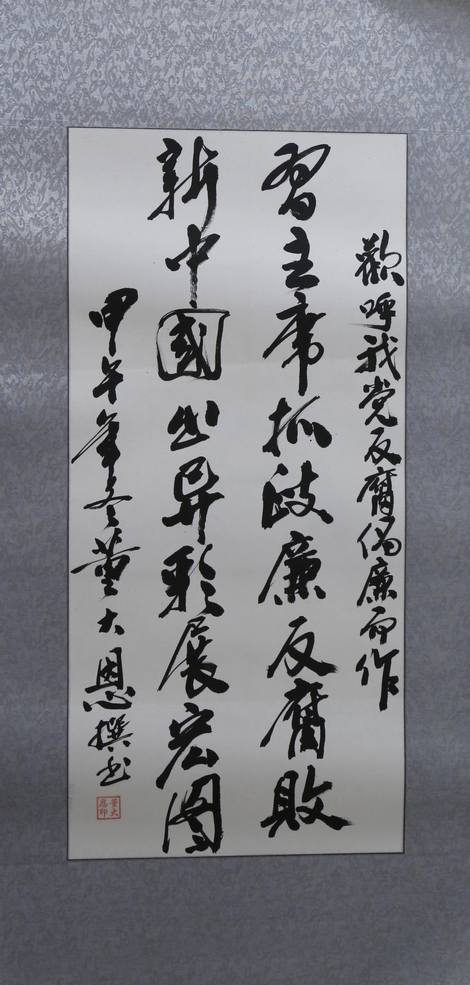 歡呼我党反腐倡廉而作
習主席抓政廉反腐敗
新中國出异彩展宏图
甲午年冬董大恩撰书
董大恩印